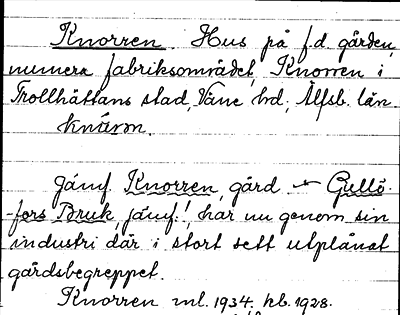 Knorren. Hus på f.d. gården,
numera fabriksområdet, Knorren i
Trollhättans stad, Väne hd, Älfsb. län.
Knärm.
Jämf. Knorren, gård Gullö-
-fors Bruk, jämf.!, har nu genom sin
industri där i stort sett utplånat
gårdsbegreppet.
Knorren ml. 1934, hb. 1928.